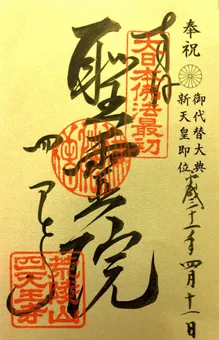 奉祝
御代替大典
新天皇即位
平成三十一年四月十一日
奉拝
大日本佛法最初
聖霊院
四天王寺
荒陵山
四天王寺